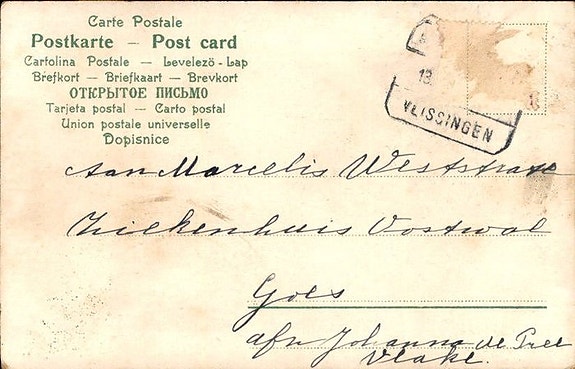 Carte Postale
Postkarte — Post card
Cartolina Postale — Levelezö-Lap
Brefkort — Briefkaart — Brevkort
ОТКРЫТОЕ ПИСЬМО
Tarjeta postal — Carto postal
Union postale universelle
Dopisnice
13
VLISSINGEN
Aan Marcelis Weststrate
Ziekenhuis Oostwal
Goes
afn Johanna de Pree
Vlake.